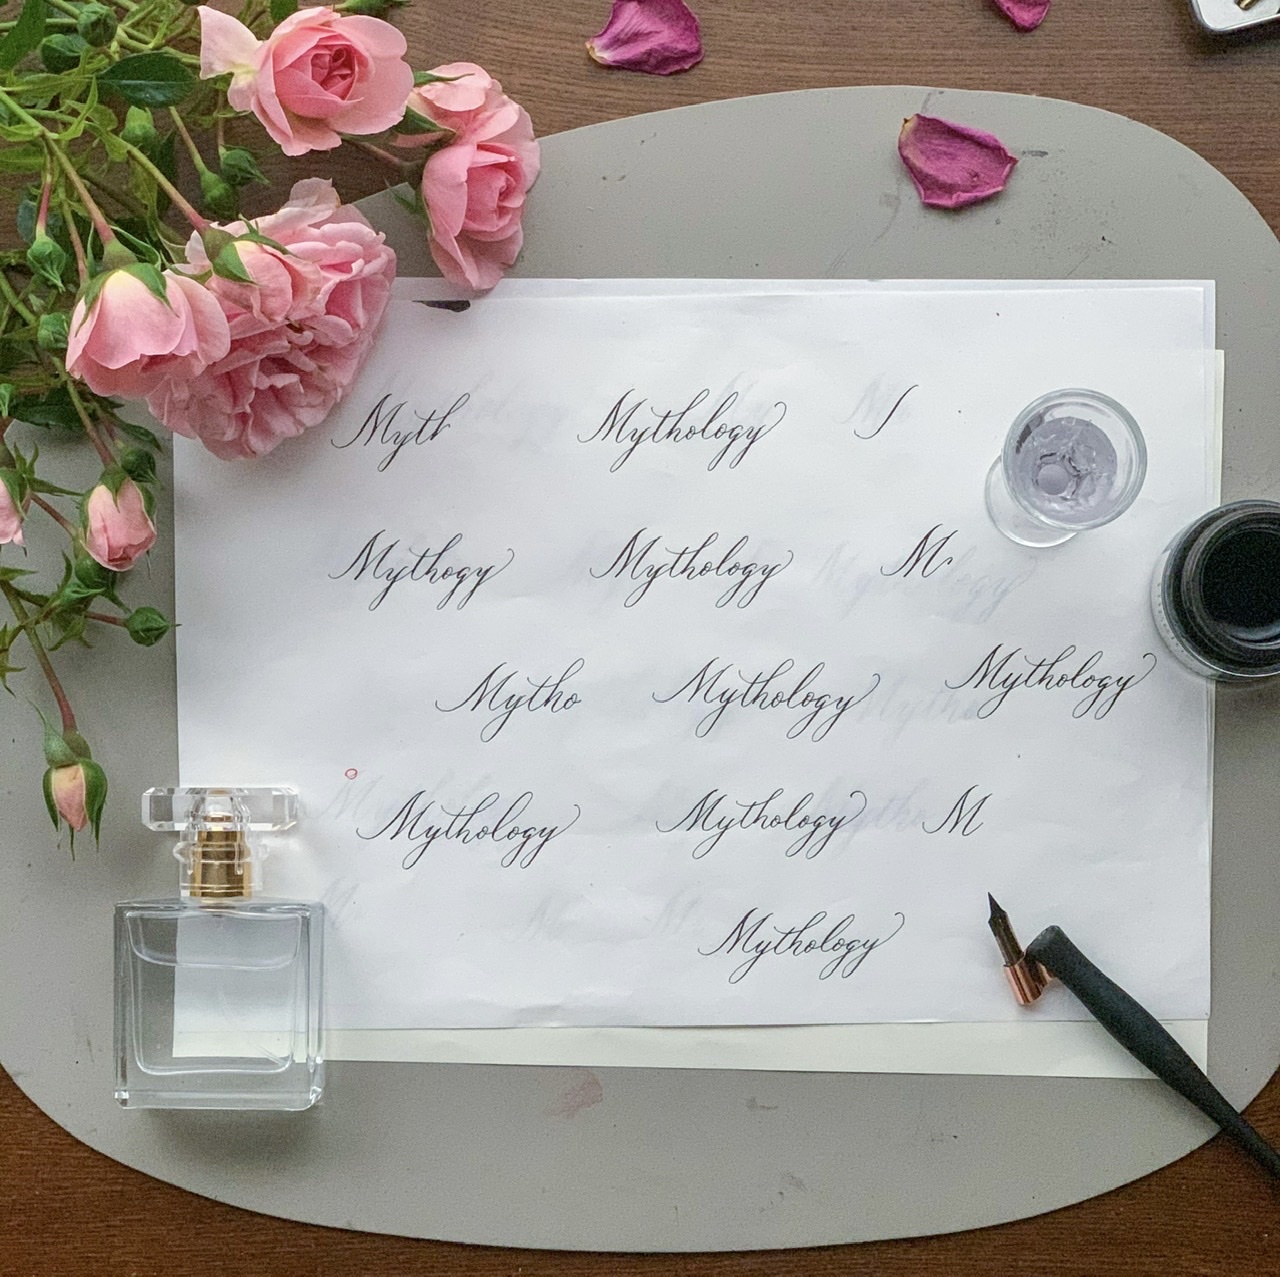 Myth Mythology
Mythogy Mythology M
Mytho Mythology Mythology
Mythology Mythology M
Mythology